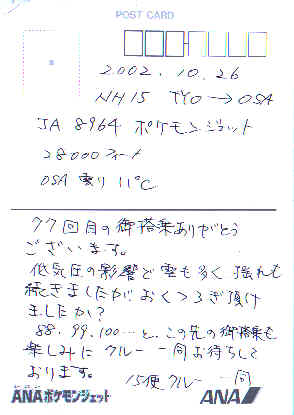 POST CARD
2002.10.26
NH15 TYO→OSA
JA 8964 ポケモンジェット
28000フィート
OSA 曇り 11℃
77回目の御搭乗ありがとう
ございます。
低気圧の影響で雲も多く揺れも
続きましたが、おくつろぎ頂け
ましたか?
88.99.100…と、この先の御搭乗も
楽しみに クルー 一同お待ちして
おります。
15便クルー 一同
ANAポケモンジェット
ANA